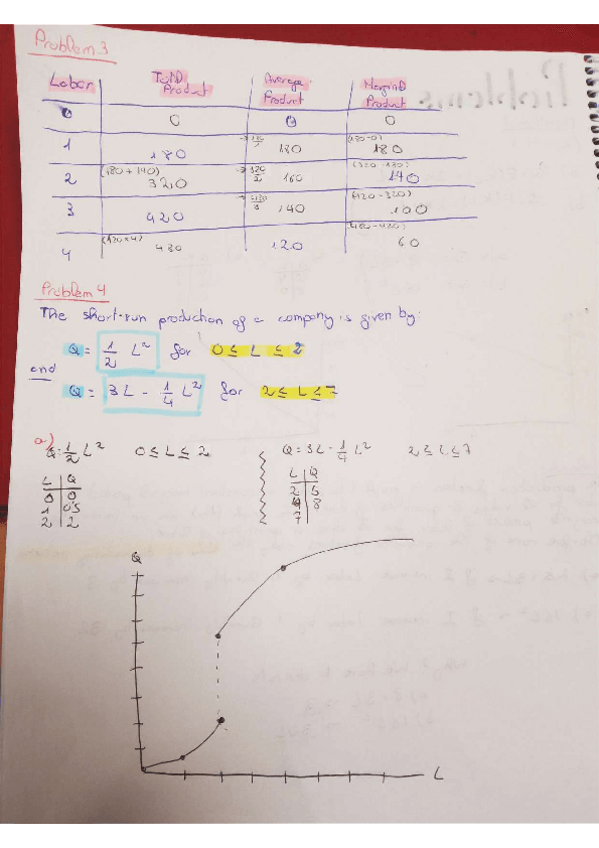 Problem 3
Labor Total Product Average Product Marginal Product
0 0 0 0
1 180 180 (180-0) 180
2 (180 + 140) 320 → 320/2 160 (320-180) 140
3 420 → 420/3 140 (420-320) 100
4 (120×4) 480 120 (480-420) 60
Problem 4
The short-run production of a company is given by:
Q = 1/2 L² for 0 ≤ L ≤ 2
and
Q = 3L - 1/4 L² for 2 ≤ L ≤ 7
a) Q = 1/2 L² 0 ≤ L ≤ 2 Q = 3L - 1/4 L² 2 ≤ L ≤ 7
L Q L Q
0 0 2 5
1 0.5 4 8
2 2 7
Q
L